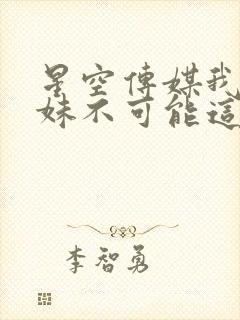 星空傳媒我
妹不可能這
李智勇